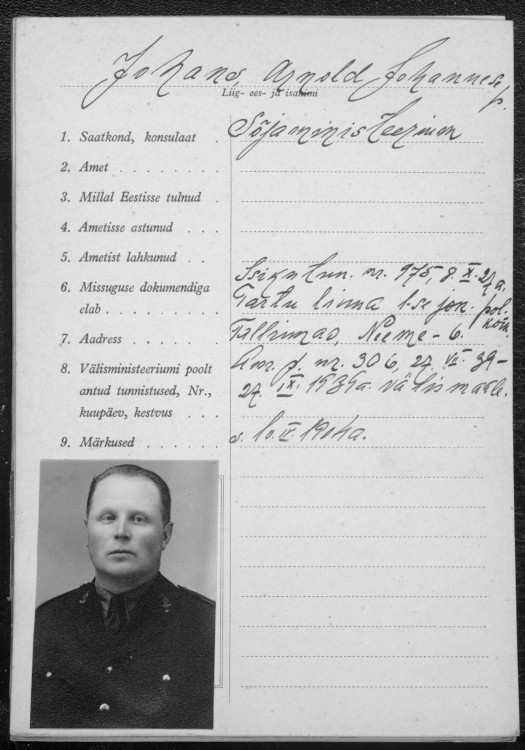 Johans, Arnold Johannese p.
Liig- ees- ja isanimi
1. Saatkond, konsulaat . Sõjaministeerium
2. Amet . . . . . . .
3. Millal Eestisse tulnud .
4. Ametisse astunud . . .
5. Ametist lahkunud . . .
6. Missuguse dokumendiga Isikutun. nr. 975, 8. X. 27 a.
elab . . . . . . . . Tartu linna 1. se jon. pol. kom.
7. Aadress . . . . . . Tallinnas, Neeme - 6.
8. Välisministeeriumi poolt Am. p. nr. 306, 27. VII 39 -
antud tunnistused, Nr., 27. IX. 1939a. välismaale.
kuupäev, kestvus . . .
9. Märkused . . . . . . s. 10. IX 1904a.